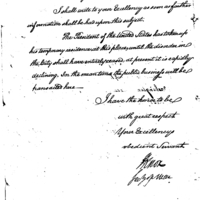 I shall write to your Excellency as soon as further
information shall be had upon this subject.
The President of the United States has taken up
his temporary residence at this place, until the disorder in
the City shall have entirely ceased, at present it is rapidly
declining. In the mean time the public business will be
transacted here
I have the honor to be
with great respect
Your Excellency's
obedient Servant